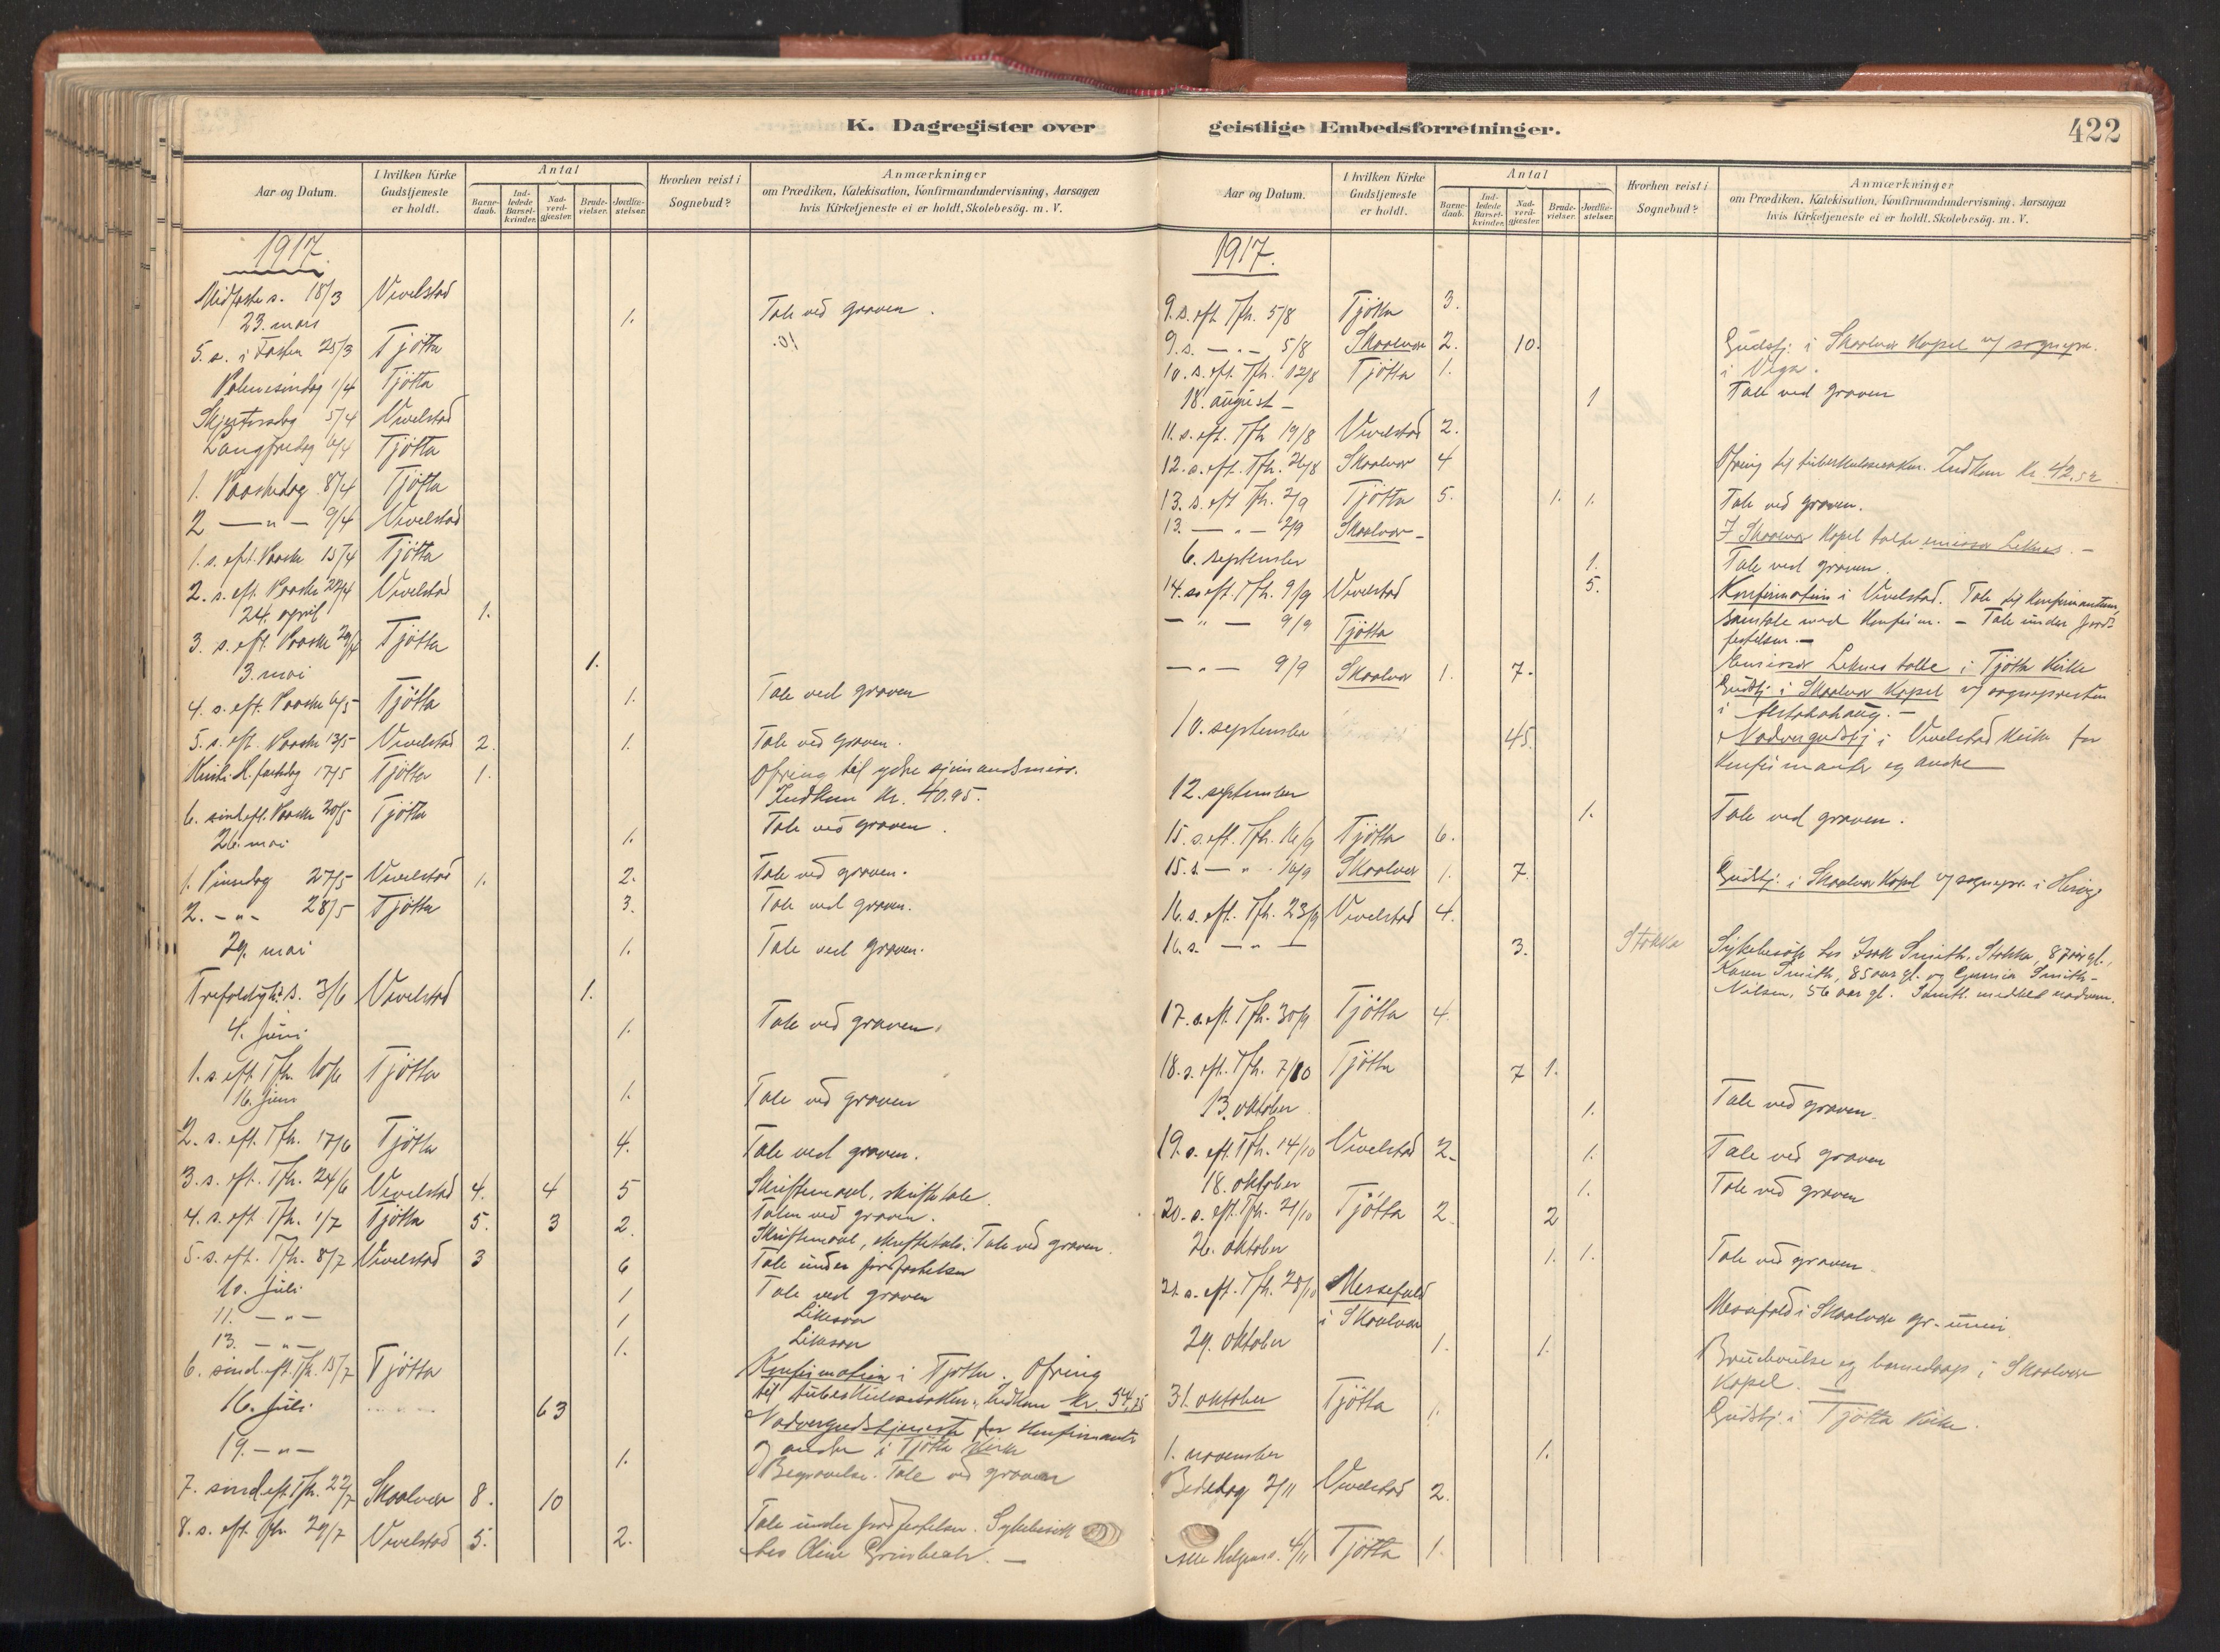 K. Dagregister over
Aar og Datum.
I hvilken Kirke Gudstjeneste er holdt.
Antal
Barnedaab.
Indledede Barselkvinder.
Nadverdgjester.
Brudevielser.
Jordfæstelser.
Hvorhen reist i Sognebud?
Anmærkninger
om Prædiken, Katekisation, Konfirmandundervisning, Aarsagen
hvis Kirketjeneste ei er holdt, Skolebesög. m. V.
1917.
Midfaste s. 18/3 Vevelstad
23. mars 1. Tale ved graven.
5. s. i Fasten 25/3 Tjötta
Palmesöndag 1/4 Tjötta
Skjærtorsdag 5/4 Vevelstad
Langfredag 6/4 Tjötta
1. Paaskedag 8/4 Tjötta
2 — " — 9/4 Vevelstad
1. s. eft. Paaske 15/4 Tjötta
2. s. eft. Paaske 22/4 Vevelstad
24. april 1.
3. s. eft. Paaske 29/4 Tjötta
3. mai 1.
4. s. eft. Paaske 6/5 Tjötta 1. Tale ved graven
5. s. eft. Paaske 13/5 Vevelstad 2. 1. Tale ved graven.
Kristi H. fartsdag 17/5 Tjötta 1. Ofring til ydre sjömandsmiss.
Indkom Kr. 40.95.
6. sönd. eft. Paaske 20/5 Tjötta
26. mai 1. Tale ved graven.
1. Pinsedag 27/5 Vevelstad 1. 2. Tale ved graven.
2. - " - 28/5 Tjötta 3. Tale ved graven.
29. mai 1. Tale ved graven.
Trefoldigh. s. 3/6 Vevelstad 1.
4. Juni 1. Tale ved graven.
1. s. eft. Tfh. 10/6 Tjötta
16. Juni 1. Tale ved graven
2. s. eft. Tfh. 17/6 Tjötta 4. Tale ved graven.
3. s. eft. Tfh. 24/6 Vevelstad 4. 4 5 Skriftemaal, skriftetale.
Talen ved graven.
4. s. eft. Tfh. 1/7 Tjötta 5. 3 2. Skriftemaal, skriftetale. Tale ved graven.
5. s. eft. Tfh. 8/7 Vevelstad 3 6 Tale under jordfæstelsen
10. Juli 1 Tale ved graven
11. — " — 1 Likesaa
13. — " — 1. Likesaa
6. sönd. eft. Tfh. 15/7 Tjötta Konfirmation i Tjötta. Ofring
til tuberkulosesaken, Indkom Kr. 54,25
16. Juli 63 Nadvergudstjeneste for konfirmanter
og andre i Tjötta Kirke
19. — " — 1. Begravelse. Tale ved graven
7. sönd. eft. Tfh. 22/7 Skaalvær 8. 10
8. s. eft. Tfh. 29/7 Vevelstad 5. 2. Tale under Jordfestelsen. Sykebesök
hos Oline Grönbech. —
geistlige Embedsforretninger.
422
Aar og Datum.
I hvilken Kirke Gudstjeneste er holdt.
Antal
Barnedaab.
Indledede Barselkvinder.
Nadverdgjester.
Brudevielser.
Jordfæstelser.
Hvorhen reist i Sognebud?
Anmærkninger
om Prædiken, Katekisation, Konfirmandundervisning, Aarsagen
hvis Kirketjeneste ei er holdt. Skolebesög. m. V.
1917.
9. s. eft. Tfh. 5/8 Tjötta 3.
9. s. — " — 5/8 Skaalvær 2. 10. Gudstj. i Skaalvær Kapel v/ sognepr.
i Vega.
10. s. eft. Tfh. 12/8 Tjötta 1.
18. august — 1 Tale ved graven
11. s. eft. Tfh 19/8 Vevelstad 2.
12. s. eft. Tfh. 26/8 Skaalvær 4 Ofring til tuberkulosesaken. Indkom Kr. 42.52.
13. s. eft Tfh. 2/9 Tjötta 5. 1. 1. Tale ved graven.
13. — " — 2/9 Skaalvær — I Skaalvær Kapel talte emissær Leknes. —
6. september 1. Tale ved graven.
14. s. eft. Tfh. 9/9 Vevelstad 5. Konfirmation i Vevelstad. Tale til konfirmanterne,
samtale med Konfirm. — Tale under Jord-
festelsen. —
— " — 9/9 Tjötta Emissær Leknes talte i Tjötta Kirke
— " — 9/9 Skaalvær 1. 7. Gudstj. i Skaalvær Kapel v/ sognepresten
i Alstahaug. —
10. september 45. Nadvergudstj. i Vevelstad kirke for
Konfirmanter og andre
12. september 1. Tale ved graven.
15. s. eft. Tfh. 16/9 Tjötta 6.
15. s. — " — 16/9 Skaalvær 1. 7. Gudstj. i Skaalvær Kapel v/ sognepr. i Herøy
16. s. eft. Tfh. 23/9 Vevelstad 4.
16. s. — " — 3. Stokka Sykebesök hos Isak Smith, Stokka, 87 aar gl.,
Karen Smith, 85 aar gl. og Smith-
Nilsen, 56 aar gl. Samtl. meddelt nadveren.
17. s. eft. Tfh. 30/9 Tjötta 4.
18. s. eft. Tfh. 7/10 Tjötta 7 1.
13. oktober 1. Tale ved graven.
19. s. eft. Tfh. 14/10 Vevelstad 2. 1. Tale ved graven
18. oktober 1. Tale ved graven
20. s. eft. Tfh. 21/10 Tjötta 2. 2
26. oktober 1. 1. Tale ved graven.
21. s. eft. Tfh. 28/10 Messefald
i Skaalvær Messefald i Skaalvær gr. uveir.
29. oktober 1. 1. Brudevielse og barnedaap i Skaalvær
Kapel. —
31. oktober Tjötta 1. Gudstj. i Tjötta Kirke.
1. november 1.
Bededag 2/11 Vevelstad 2.
Alle Helgens s. 4/11 Tjötta 1.